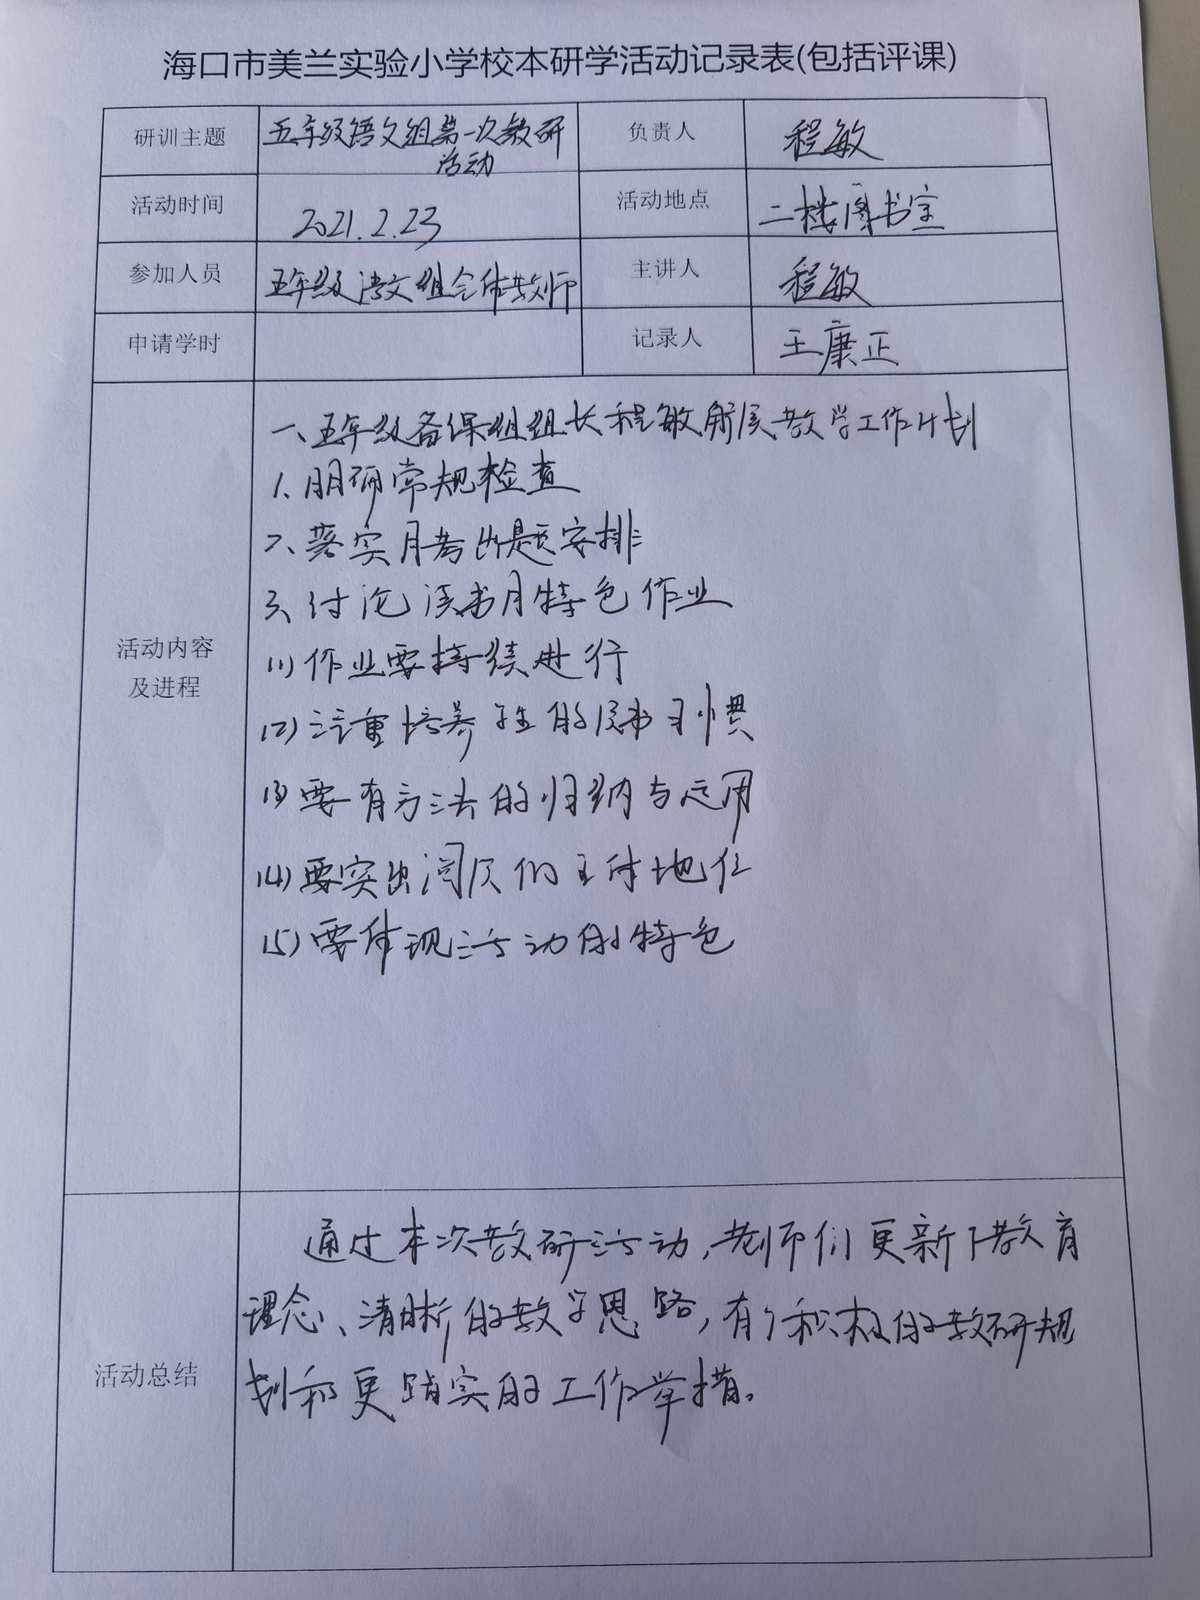 海口市美兰实验小学校本研学活动记录表(包括评课)
研训主题 五年级语文组第一次教研 负责人 程敏
活动
活动时间 2021.2.23 活动地点 二楼图书室
参加人员 五年级语文组全体教师 主讲人 程敏
申请学时 记录人 王康正
一、五年级备课组组长程敏解读教学工作计划
1、明确常规检查
2、落实月考出题安排
3、讨论读书月特色作业
活动内容
及进程
(1)作业要持续进行
(2)注重培养学生的读书习惯
(3)要有方法的归纳与运用
(4)要突出阅读的主体地位
(5)要体现活动的特色
通过本次教研活动,老师们更新了教育
理念、清晰的教学思路,有了积极的教研规
活动总结
划和更踏实的工作举措。